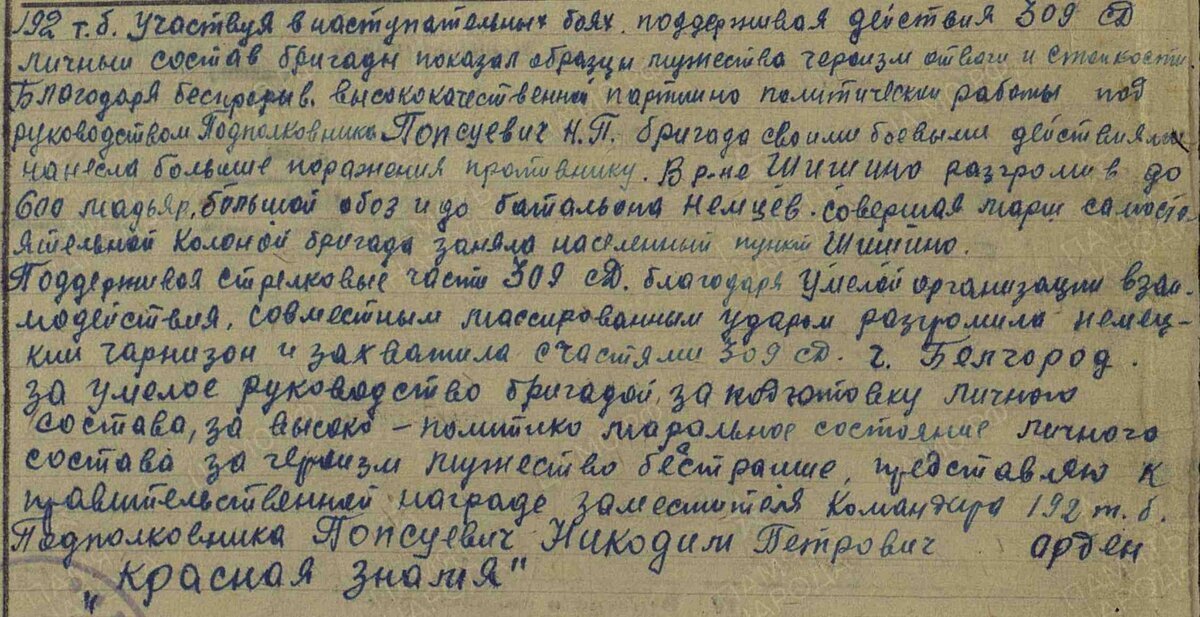 192 т.б. Участвуя в наступательных боях, поддерживая действия 309 сд
личный состав бригады показал образцы мужества героизм отваги и стойкости.
Благодаря беспрерыв. высококачественной партийно политический работы под
руководством Подполковника Попсуевич Н.П. бригада своими боевыми действиями
нанесла большие поражения противнику. В р-не Шишино разгромив до
600 мадьяр, большой обоз и до батальона немцев. совершая марш самосто-
ятельной колоной бригада заняла населенный пункт Шишино.
Поддерживая стрелковые части 309 сд. благодаря умелой организации взаи-
модействия, совместным массированным ударом разгромила немец-
кий гарнизон и захватила с частями 309 сд. г. Белгород.
за умелое руководство бригадой, за подготовку личного
состава, за высоко - политико маральное состояние личного
состава за героизм мужество бесстрашие, представляю к
правительственной награде заместителя Командира 192 т.б.
Подполковника Попсуевич Никодим Петрович орден
"Красная знамя"